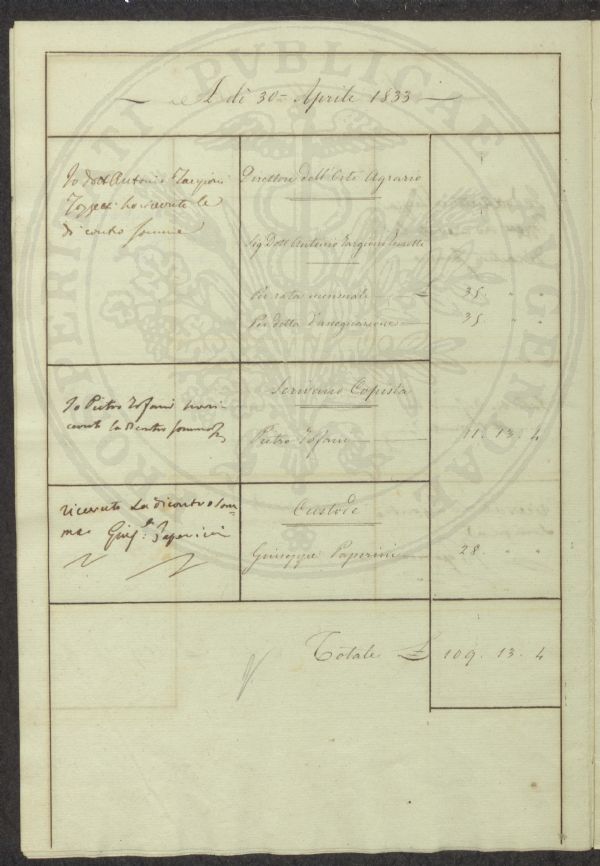 A dì 30 Aprile 1833
Io Dott Antonio Targioni
Tozzetti ho ricevuto le
di contro somme
Direttore dell'Orto Agrario
Sig Dott Antonio Targioni Tozzetti
Per rata mensuale 35. " "
Per detta d'insegnazione 35. " "
Io Pietro Tofani ho ri
cevuto la di contro somma
Scrivano Copista
Pietro Tofani 11. 13. 4
ricevuto La dicontro som=
ma Giusᵉ Paperini
Custode
Giuseppe Paperini 28. " "
Totale £ 109. 13. 4
PROPERITATI PUBLICAE AUGENDAE